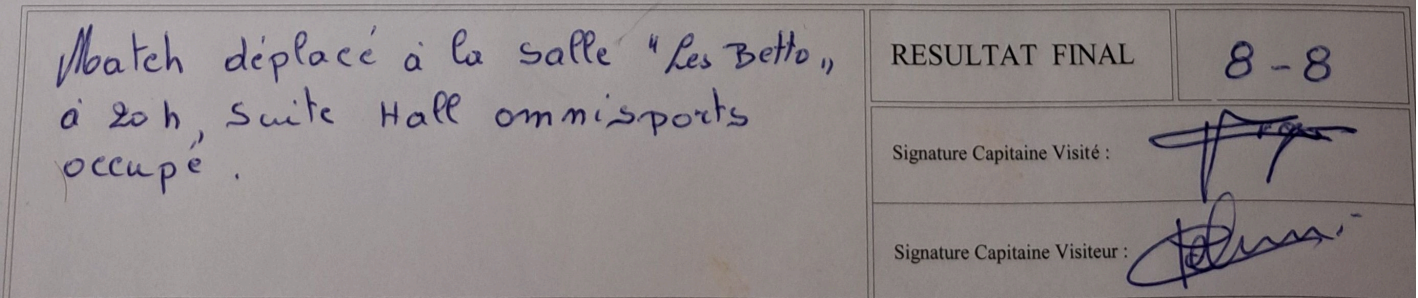 Match déplacé à la salle "Les Betto"
à 20h, suite Hall omnisports
occupé.
RESULTAT FINAL
8-8
Signature Capitaine Visité :
Signature Capitaine Visiteur :